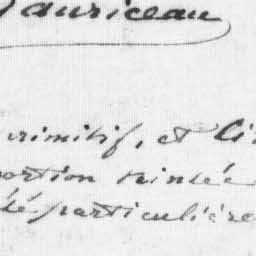 Mauriceau
primitif, et li
portion teintée
té particulière